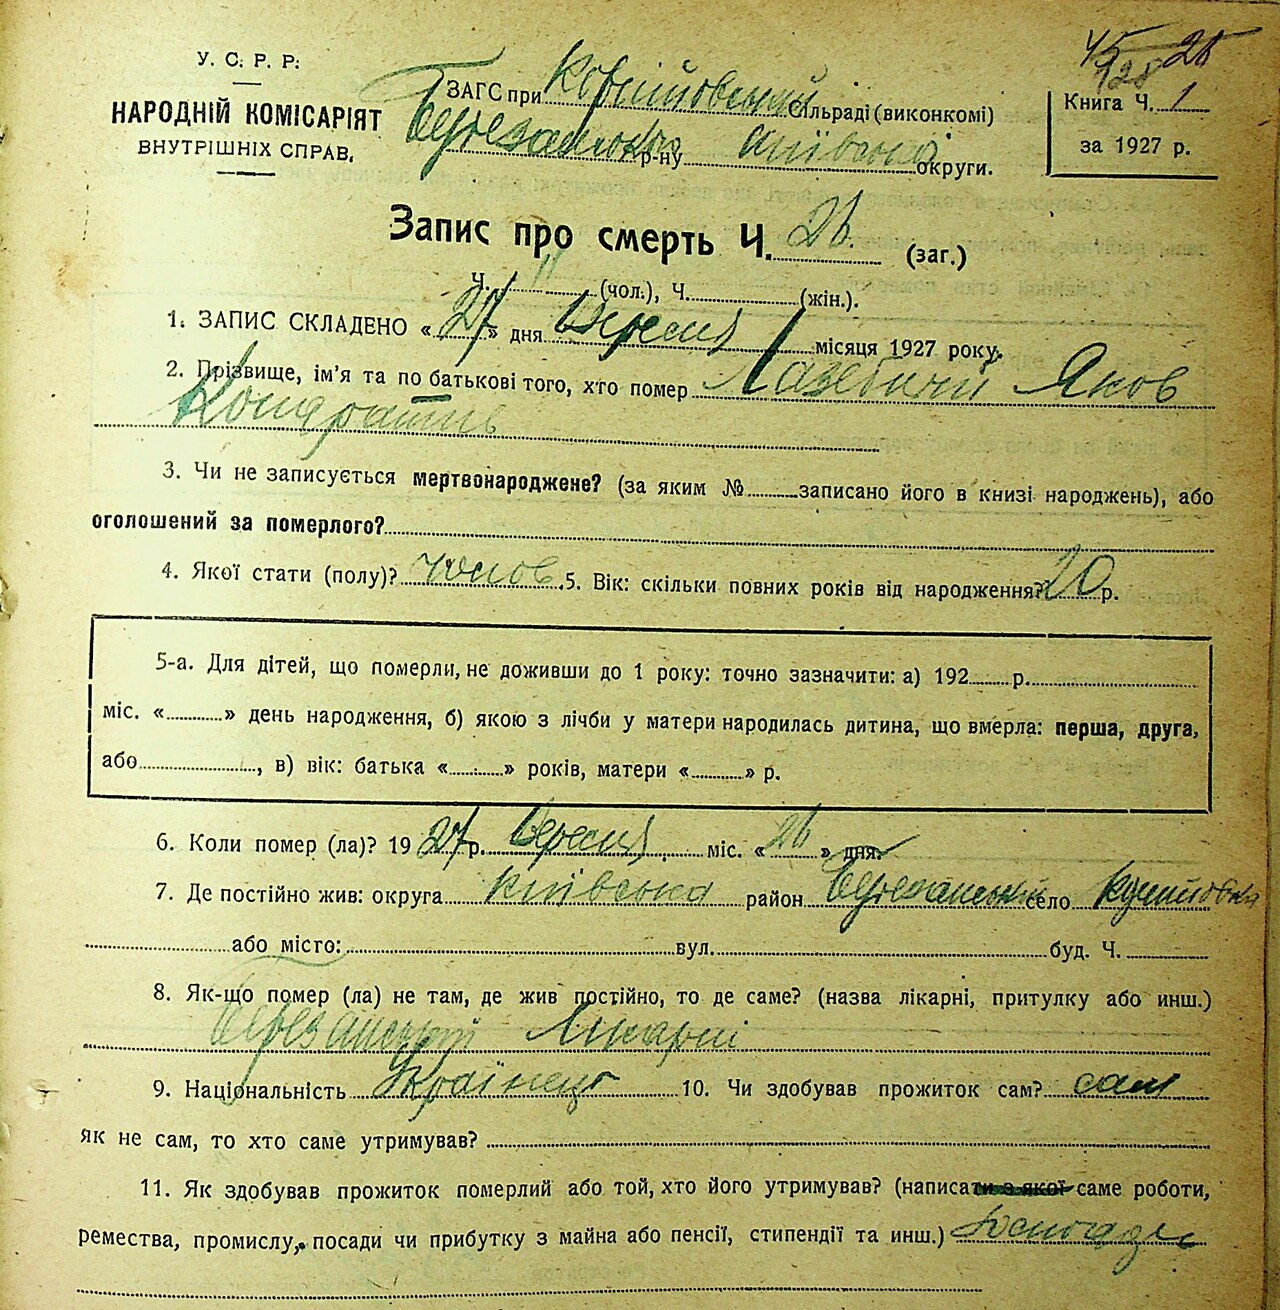 У. С. Р. Р.
НАРОДНІЙ КОМІСАРІЯТ
ВНУТРІШНІХ СПРАВ.
ЗАГС при Сільраді (виконкомі)
р-ну Київської округи.
45 26
128
Книга Ч. 1
за 1927 р.
Запис про смерть Ч. 26. (заг.)
Ч. 11 (чол.), Ч. (жін.).
1. ЗАПИС СКЛАДЕНО «27» дня Вересня місяця 1927 року.
2. Прізвище, ім'я та по батькові того, хто помер Лазебний Яков
Кондратів
3. Чи не записується мертвонароджене? (за яким № записано його в книзі народжень), або
оголошений за померлого?
4. Якої стати (полу)? чолов. 5. Вік: скільки повних років від народження? 20 р.
5-а. Для дітей, що померли, не доживши до 1 року: точно зазначити: а) 192 р.
міс. « » день народження, б) якою з лічби у матери народилась дитина, що вмерла: перша, друга,
або , в) вік: батька « » років, матери « » р.
6. Коли помер (ла)? 1927 р. Вересня міс. «26» дня.
7. Де постійно жив: округа Київська район Березанський село
або місто: вул. буд. Ч.
8. Як-що помер (ла) не там, де жив постійно, то де саме? (назва лікарні, притулку або инш.)
Березанській Лікарні
9. Національність Українець 10. Чи здобував прожиток сам? сам
як не сам, то хто саме утримував?
11. Як здобував прожиток померлий або той, хто його утримував? (написати з якої саме роботи,
ремества, промислу, посади чи прибутку з майна або пенсії, стипендії та инш.)